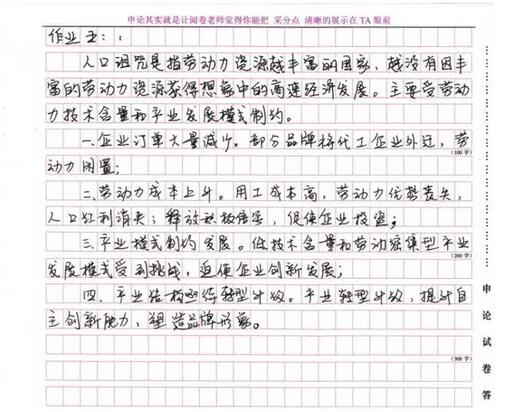 申论其实就是让阅卷老师觉得你能把 采分点 清晰的展示在TA眼前
作业五:
人口诅咒是指劳动力资源越丰富的国家,越没有因丰
富的劳动力资源获得想象中的高速经济发展。主要受劳动
力技术含量和产业发展模式制约。
一、企业订单大量减少。部分品牌将代工企业外迁,劳
动力闲置;
(100字)
二、劳动力成本上升。用工成本高,劳动力优势丧失,
人口红利消失;释放积极信号,促使企业投资;
三、产业模式制约发展。低技术含量和劳动密集型产业
(200字)
发展模式受到挑战,迫使企业创新发展;
四、产业结构亟待转型升级。产业转型升级,提升自
主创新能力,塑造品牌形象。
(300字)
申论试卷答